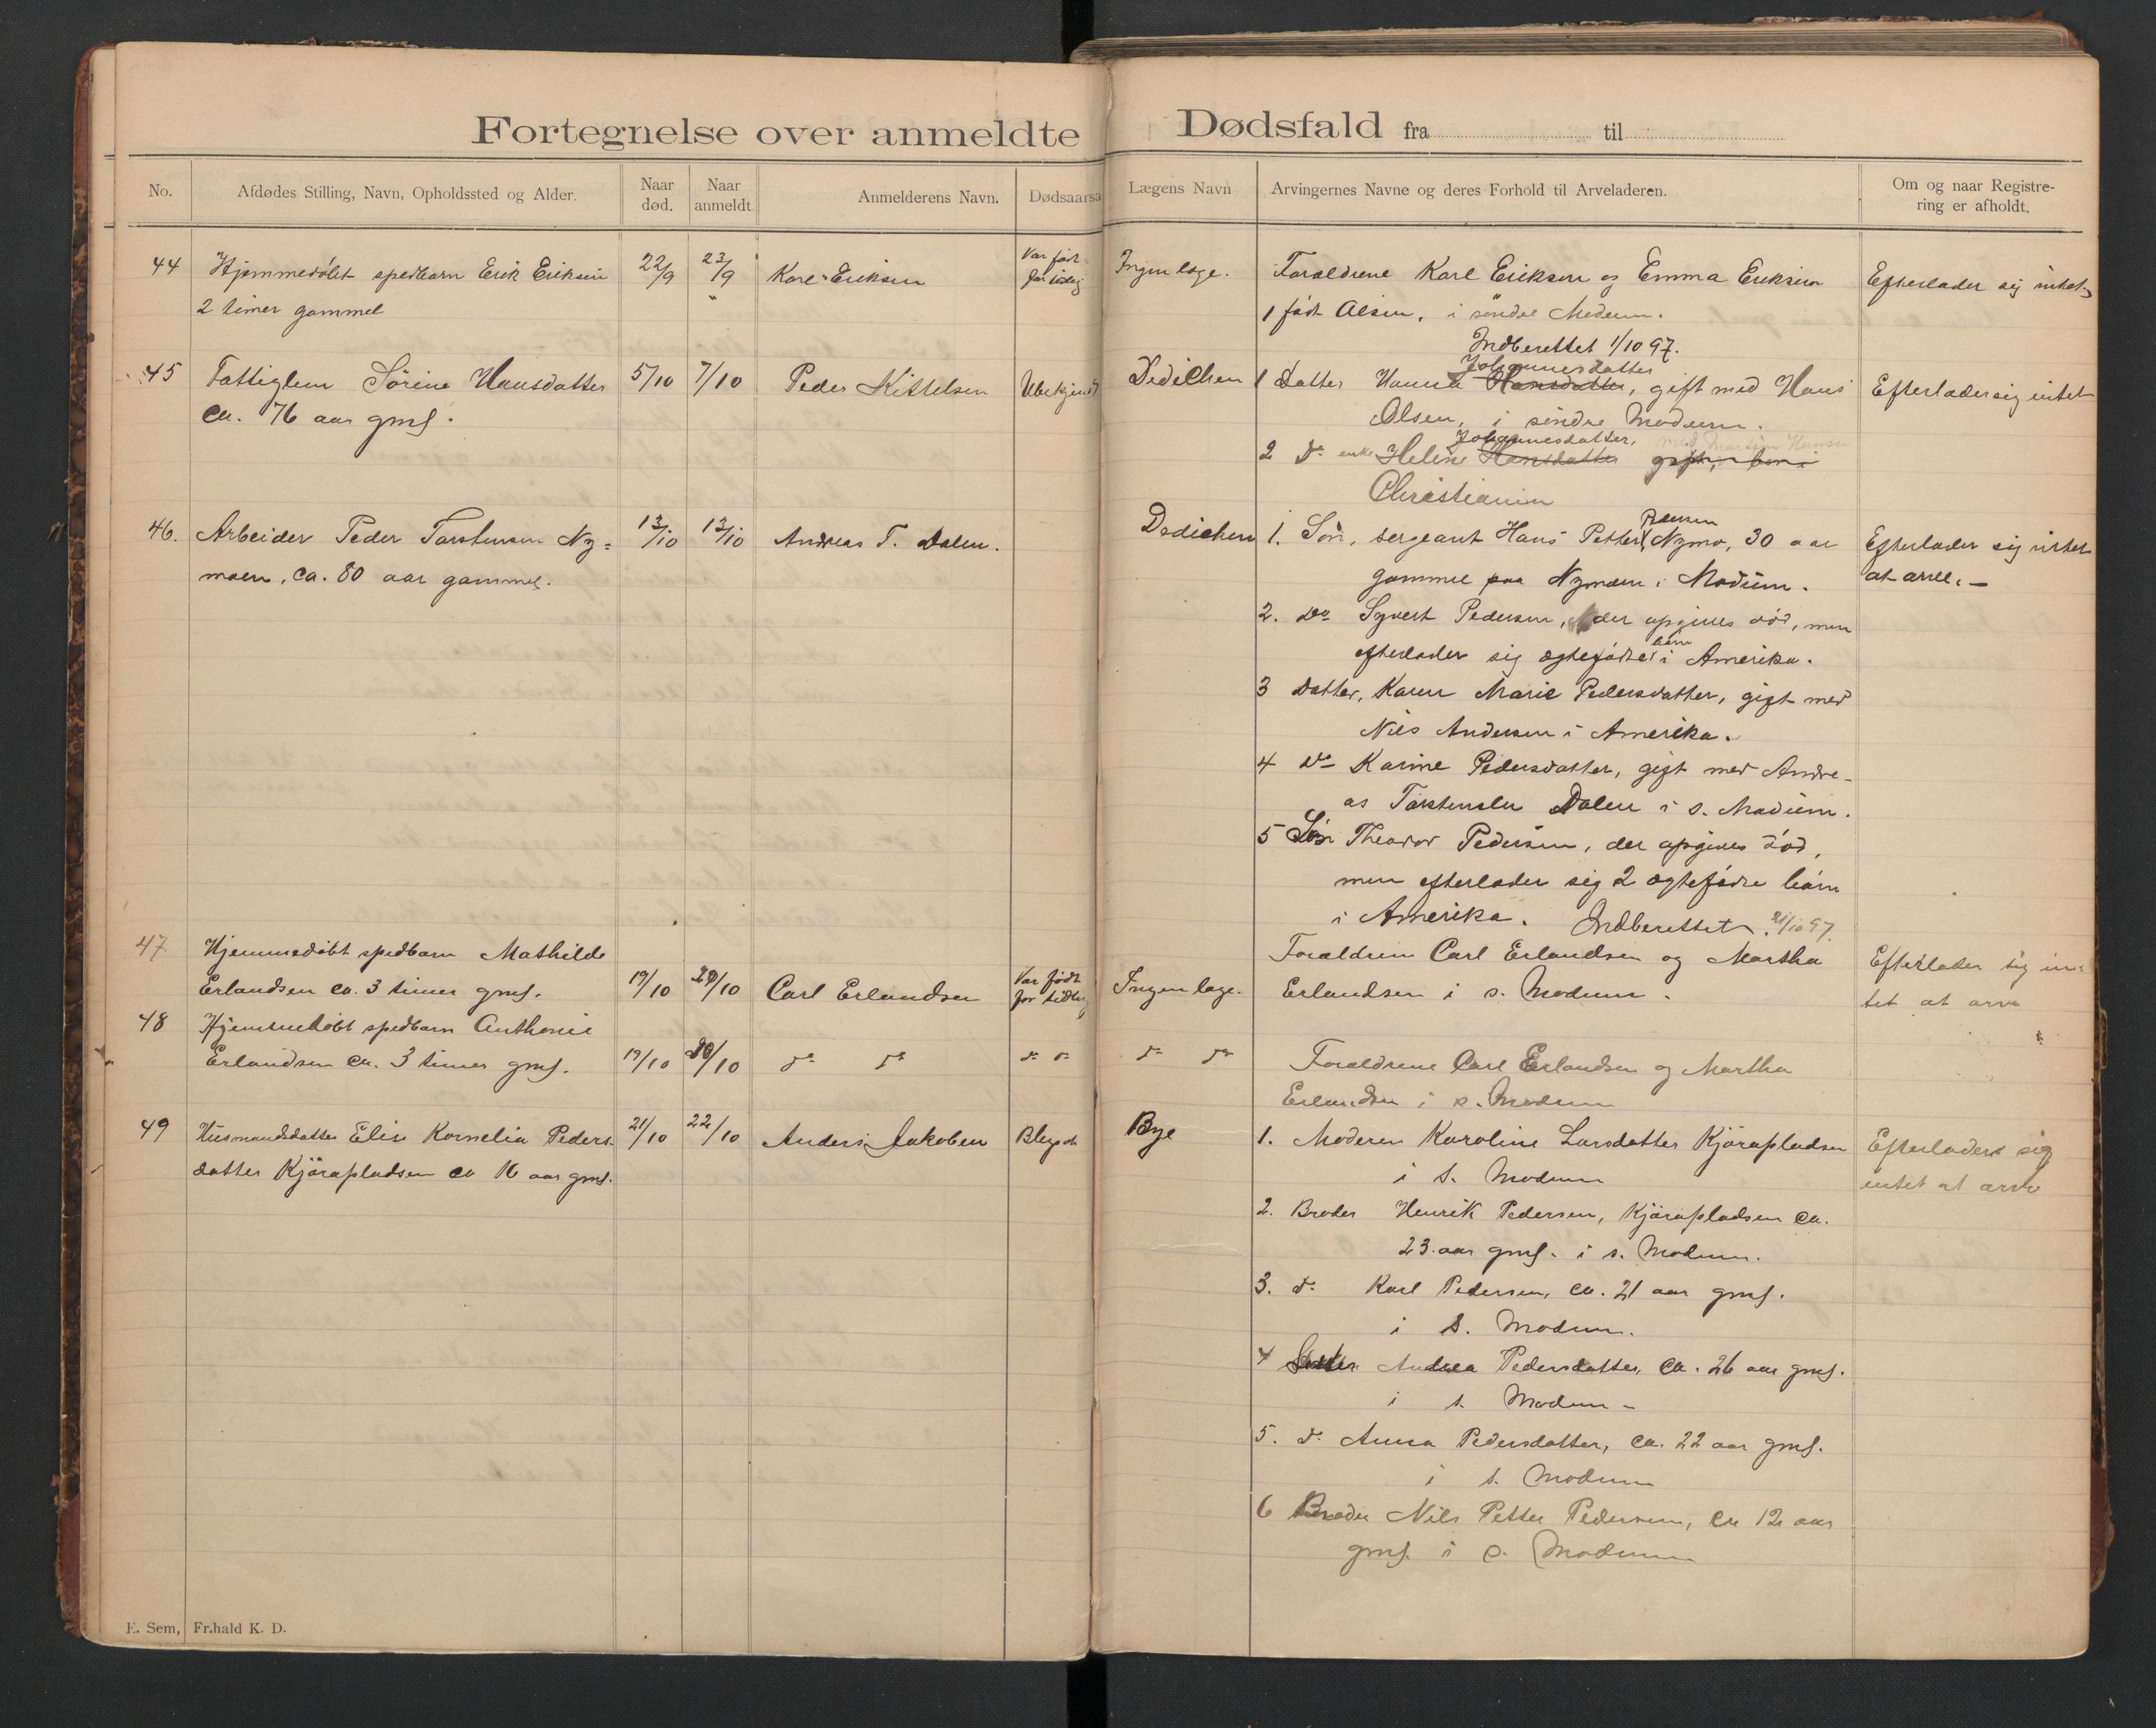 Fortegnelse over anmeldte Dødsfald fra til
No. Afdødes Stilling, Navn, Opholdssted og Alder. Naar død. Naar anmeldt. Anmelderens Navn. Dødsaarsa Lægens Navn Arvingernes Navne og deres Forhold til Arveladeren. Om og naar Registrering er afholdt.
44 Hjemmedøbt spedbarn Erik Eriksen 22/9 23/9 Karl Eriksen Var født for tidlig Ingen læge. Forældrene Karl Eriksen og Emma Eriksen Efterlader sig intet
2 timer gammel " født Olsen, i søndre Modum.
Indberettet 1/10 97.
45 Fattiglem Sörine Hansdatter 5/10 7/10 Peder Kittelsen Ubekjendt Dedichen 1 Datter Hanna Hansdatter Johannesdatter, gift med Hans Efterlader sig intet
ca. 76 aar gml. Olsen, i söndre Modum.
2 do enke Helene Hansdatter Johannesdatter, gift, bor i
Christiania
46. Arbeider Peder Torstensen Ny= 13/10 13/10 Andreas T. Dalen. Dedichen 1. Søn, sergeant Hans Petter Nymo, 30 aar Efterlader sig intet
moen, ca. 80 aar gammel. gammel paa Nymoen i Modum. at arve. —
2. Do Syvert Pedersen, der opgives död, men
efterlader sig ægtefödte börn i Amerika.
3 Datter, Karen Marie Pedersdatter, gift med
Nils Andersen i Amerika.
4 do Karine Pedersdatter, gift med Andre-
as Torstensen Dalen i s. Modum.
5 Søn Theodor Pedersen, der opgives död,
men efterlader sig 2 ægtefödte börn
i Amerika. Indberettet 21/10 97.
47. Hjemmedöbt spedbarn Mathilde Forældrene Carl Erlandsen og Martha Efterlader sig in-
Erlandsen ca. 3 timer gml. 19/10 20/10 Carl Erlandsen Var födt for tidlig Ingen læge. Erlandsen i s. Modum. tet at arve
48 Hjemmedöbt spedbarn Anthonie
Erlandsen ca. 3 timer gml. 19/10 20/10 do do do do do do Forældrene Carl Erlandsen og Martha
Erlandsen i s. Modum
49 Husmandsdatter Elise Kornelia Peders 21/10 22/10 Anders Jakobsen Blegsot Bye 1. Moderen Karoline Larsdatter Kjörapladsen Efterlader sig
datter Kjörapladsen ca 16 aar gml. i s. Modum intet at arve
2. Broder Henrik Pedersen, Kjörapladsen ca.
23 aar gml. i s. Modum.
3. do Karl Pedersen, ca. 21 aar gml.
i s. Modum.
4 Söster Andrea Pedersdatter, ca. 26 aar gml.
i s. Modum -
5. do Anna Pedersdatter, ca. 22 aar gml.
i s. Modum
6 Broder Nils Petter Pedersen, ca 12 aar
gml. i s. Modum
E. Sem, Fr.hald K. D.